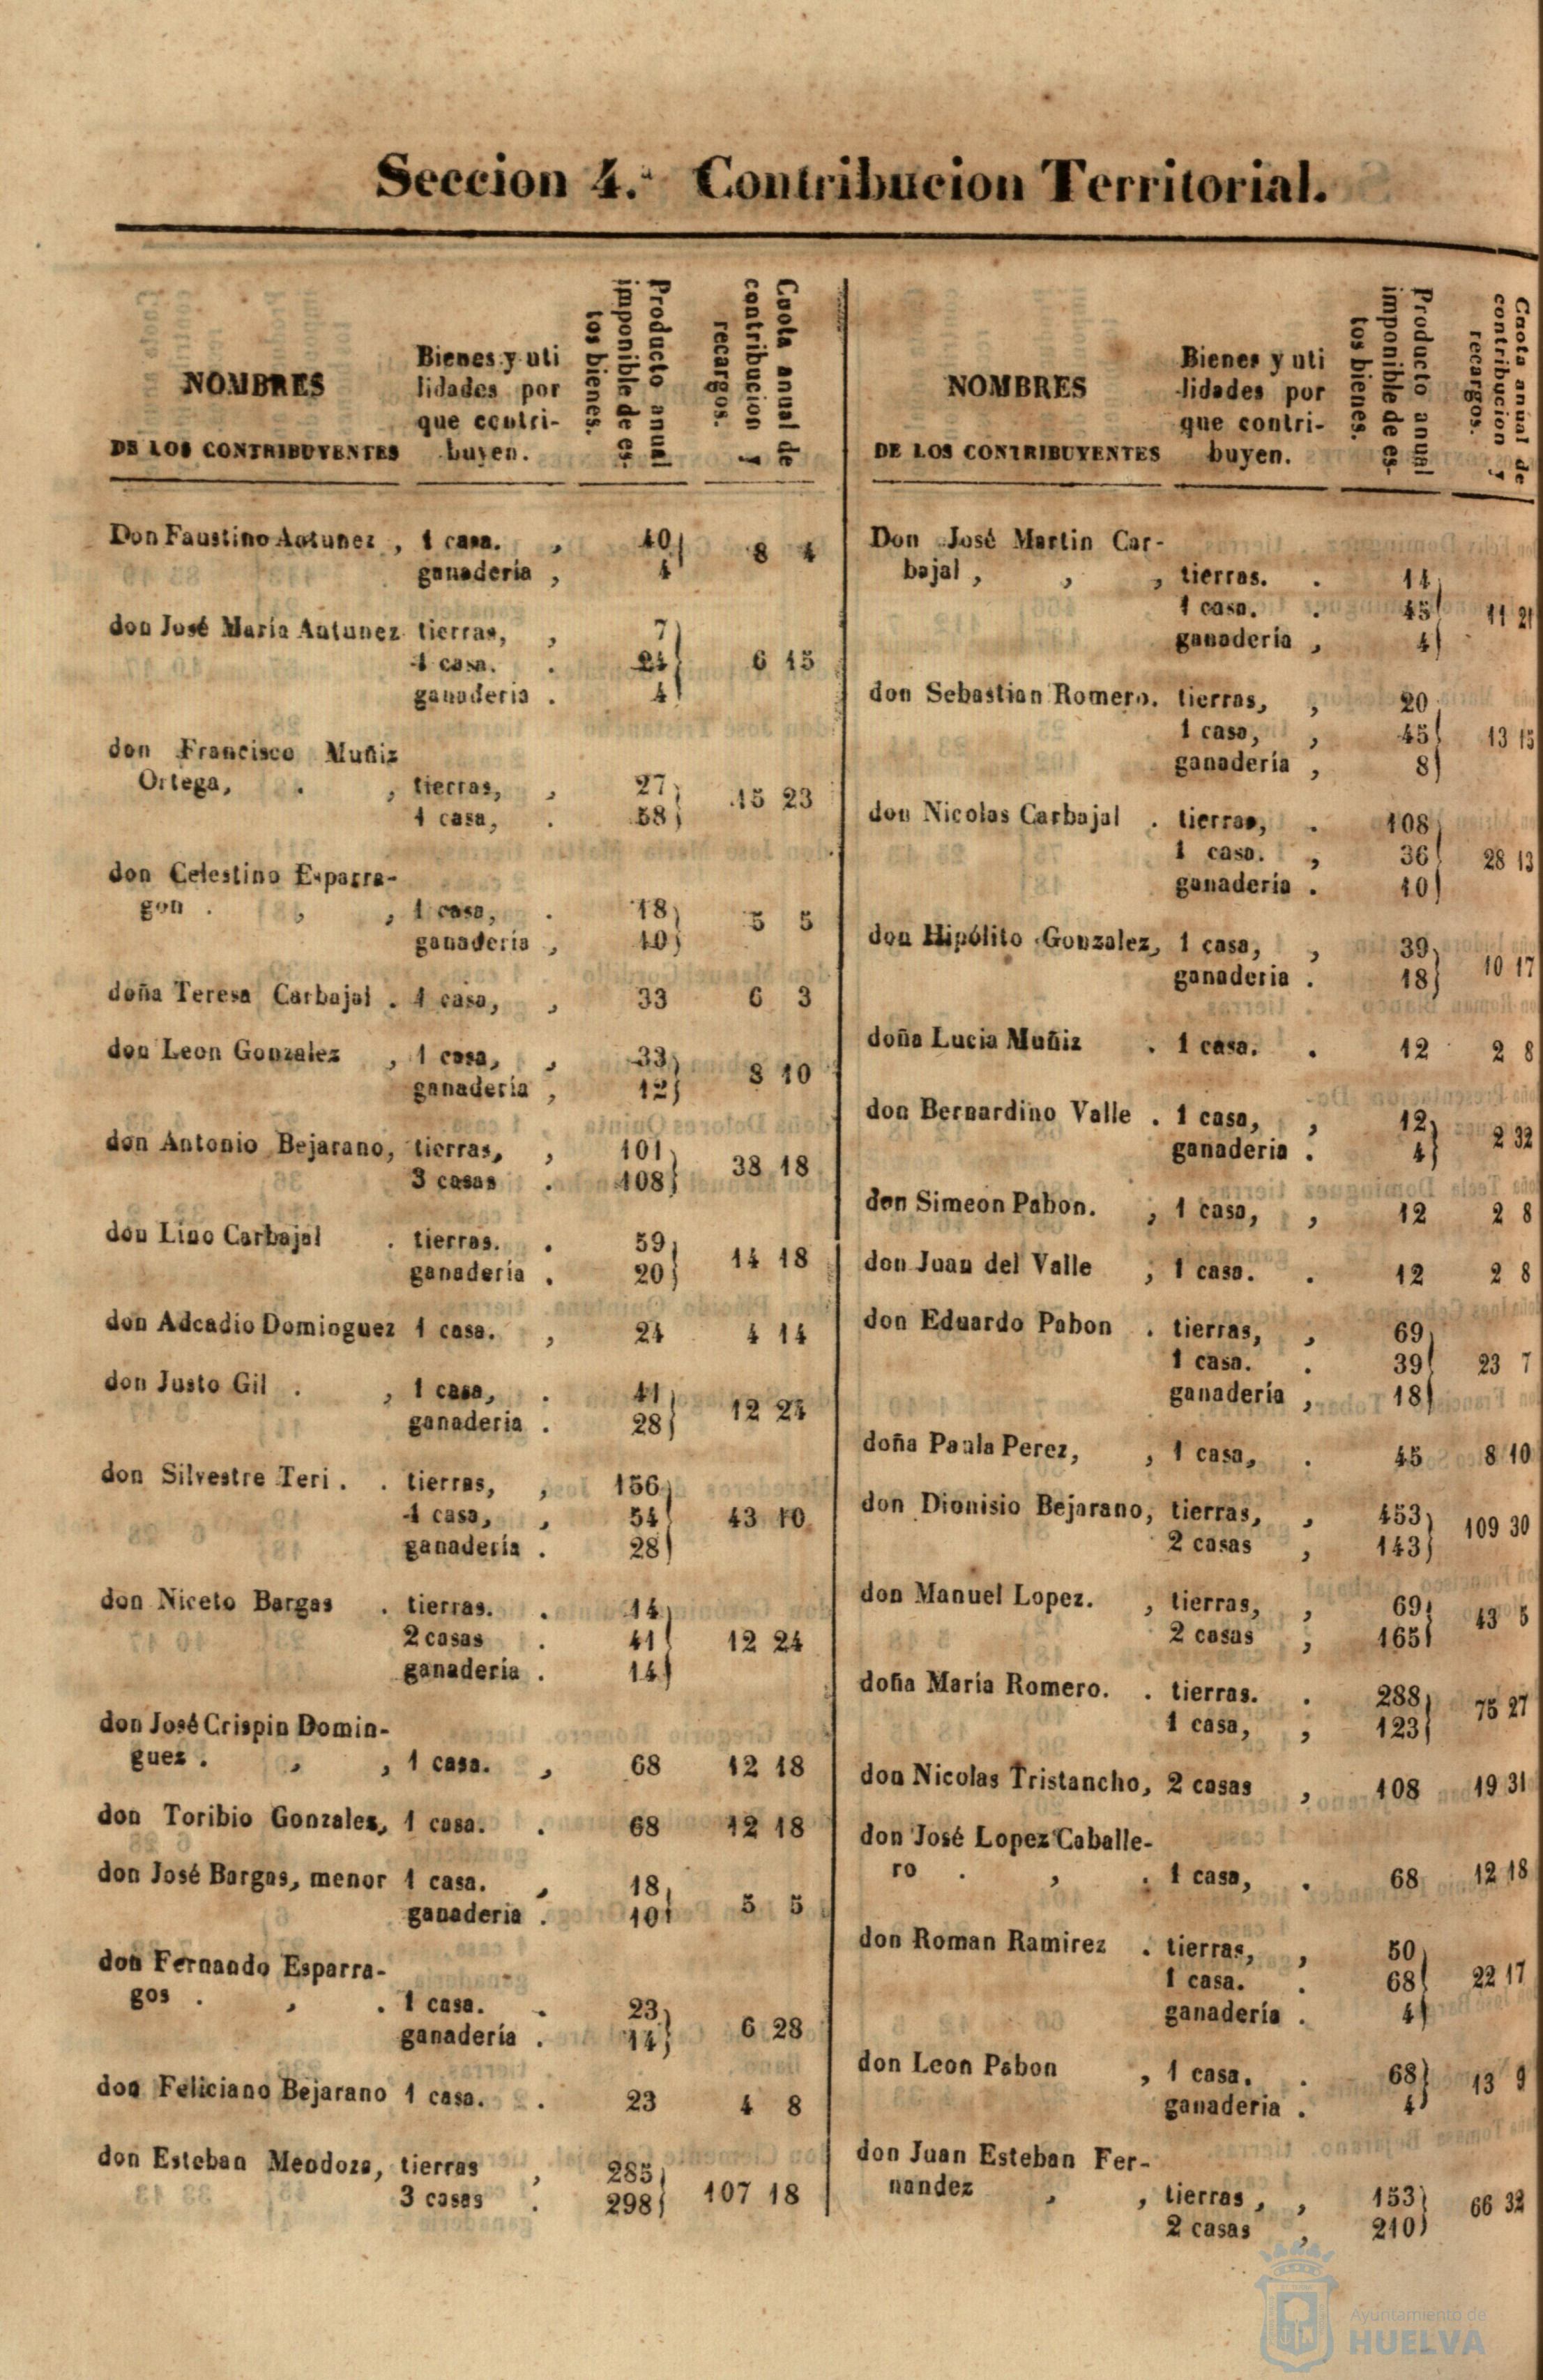 Seccion 4.ª Contribucion Territorial.
NOMBRES
DE LOS CONTRIBUYENTES
Bienes y uti
lidades por
que contri-
buyen.
Producto anual
imponible de es-
tos bienes.
Cuota anual de
contribucion y
recargos.
Don Faustino Antunez , 1 casa. , 40
ganaderia , 4 8 4
don José Maria Antunez tierras, , 7
1 casa. . 24 6 15
ganaderia . 4
don Francisco Muñiz
Ortega, . , tierras, , 27
1 casa, . 58 15 23
don Celestino Esparra-
gon . , , 1 casa, . 18
ganaderia , 10 5 5
doña Teresa Carbajal . 1 casa, , 33 6 3
don Leon Gonzalez , 1 casa, , 33
ganadería , 12 8 10
don Antonio Bejarano, tierras, , 101
3 casas . 108 38 18
don Lino Carbajal . tierras. . 59
ganaderia . 20 14 18
don Adcadio Dominguez 1 casa. , 24 4 14
don Justo Gil . , 1 casa, . 41
ganaderia . 28 12 24
don Silvestre Teri . . tierras, , 156
1 casa, , 54 43 10
ganadería . 28
don Niceto Bargas . tierras. . 14
2 casas . 41 12 24
ganadería . 14
don José Crispin Domin-
guez . , , 1 casa. , 68 12 18
don Toribio Gonzalez, 1 casa. . 68 12 18
don José Bargas, menor 1 casa. , 18
ganaderia . 10 5 5
don Fernando Esparra-
gos . , . 1 casa. . 23
ganadería . 14 6 28
don Feliciano Bejarano 1 casa. . 23 4 8
don Esteban Mendoza, tierras , 285
3 casas . 298 107 18
NOMBRES
DE LOS CONTRIBUYENTES
Bienes y uti
lidades por
que contri-
buyen.
Producto anual
imponible de es-
tos bienes.
Cuota anual de
contribucion y
recargos.
Don José Martin Car-
bajal , , , tierras. . 14
1 casa. . 45 11 21
ganadería , 4
don Sebastian Romero. tierras, , 20
1 casa, , 45 13 15
ganadería , 8
don Nicolas Carbajal . tierras, . 108
1 casa. , 36 28 13
ganaderia . 10
don Hipólito Gonzalez, 1 casa, , 39
ganaderia . 18 10 17
doña Lucia Muñiz . 1 casa. . 12 2 8
don Bernardino Valle . 1 casa, , 12
ganaderia . 4 2 32
don Simeon Pabon. , 1 casa, , 12 2 8
don Juan del Valle , 1 casa. . 12 2 8
don Eduardo Pabon . tierras, , 69
1 casa. . 39 23 7
ganadería , 18
doña Paula Perez, , 1 casa, . 45 8 10
don Dionisio Bejarano, tierras, , 453
2 casas , 143 109 30
don Manuel Lopez. , tierras, , 69
2 casas , 165 43 5
doña Maria Romero. . tierras. . 288
1 casa, , 123 75 27
don Nicolas Tristancho, 2 casas , 108 19 31
don José Lopez Caballe-
ro . , . 1 casa, . 68 12 18
don Roman Ramirez . tierras, , 50
1 casa. . 68 22 17
ganadería . 4
don Leon Pabon , 1 casa. . 68
ganaderia . 4 13 9
don Juan Esteban Fer-
nandez , , tierras , , 153
2 casas , 210 66 32
Ayuntamiento de
HUELVA